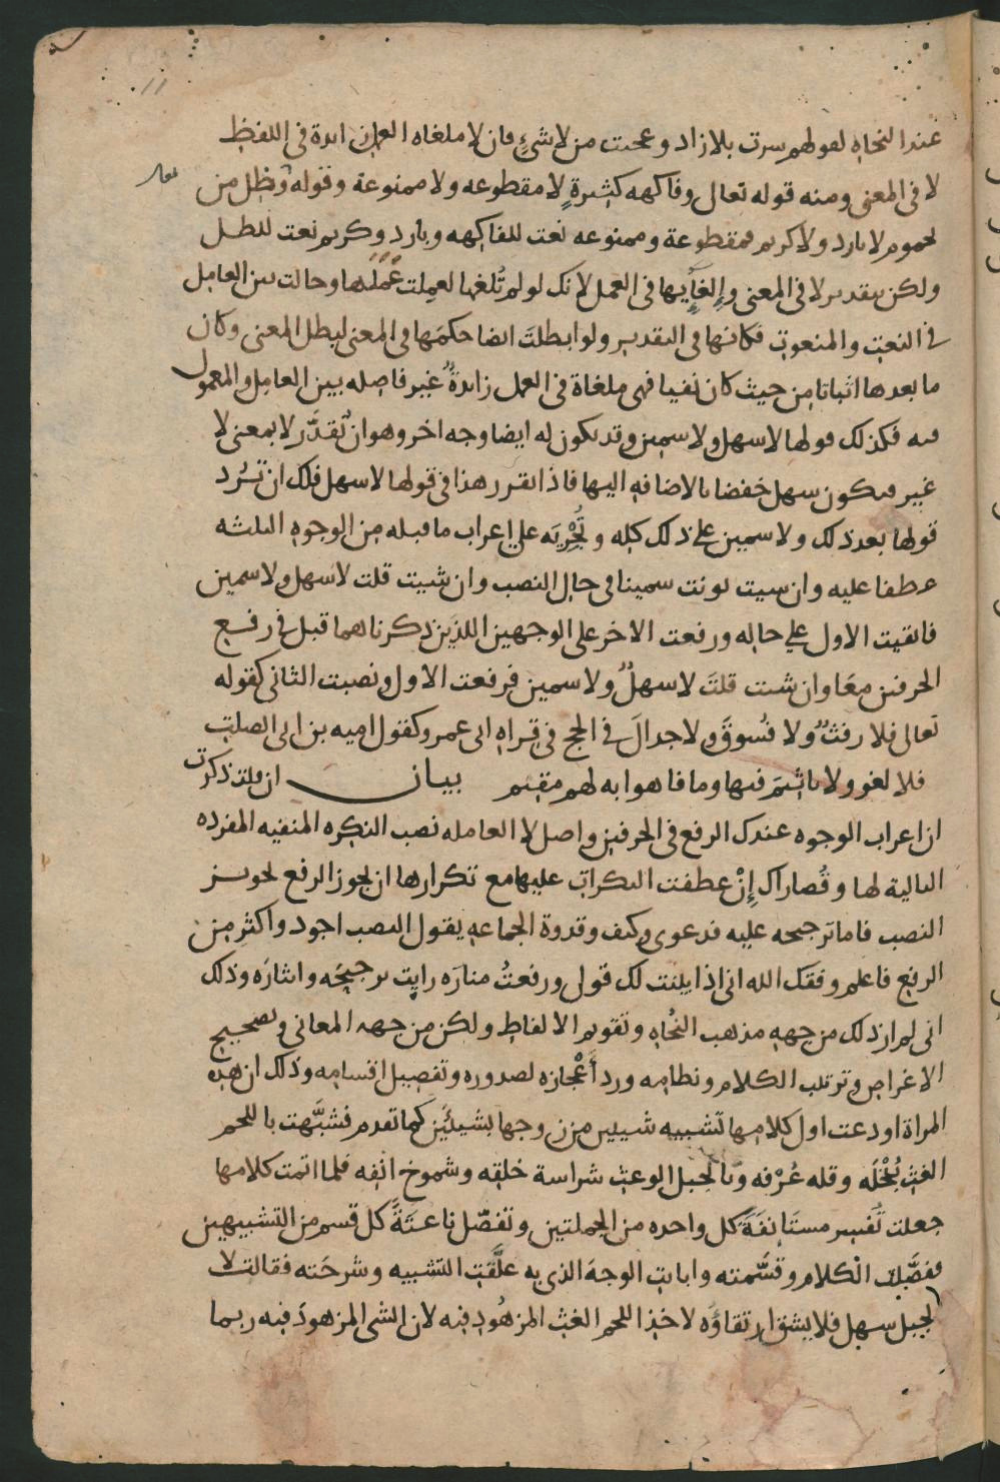 عند النحاه لقولهم سرت بلا زاد وعجبت من لا شيء فان لا ملغاه العمل زايدة في اللفظ
لا في المعنى ومنه قوله تعالى وفاكهه كثيرةٍ لا مقطوعه ولا ممنوعة وقوله وظل من
يحموم لا بارد ولا كريم فمقطوعة وممنوعه نعت للفاكهه وبارد وكريم نعت للظل
ولكن بتقدير لا في المعنى والغايها في العمل لانك لو لم تُلغها لعملت عَمَلها وحالت بين العامل
في النعت والمنعوت فكانها في التقدير ولو ابطلتَ ايضا حكمها في المعنى لبطل المعنى وكان
ما بعدها اثباتا من حيث كان نفيا فهي ملغاة في العمل زائدةٌ غير فاصله بين العامل والمعمول
فيه فكذلك قولها لا سهل ولا سمين وقد يكون له ايضا وجه اخر وهو ان تُقدَّر لا بمعنى لا
غير فيكون سهل خفضا بالاضافه اليها فاذا تقرر هذا في قولها لا سهل فلك ان تَرُد
قولها بعد ذلك ولا سمين على ذلك كله وتُجْرِيَه على اعراب ما قبله من الوجوه الثلثه
عطفا عليه وان شيت نونت سمينا في حال النصب وان شيت قلت لا سهل ولا سمين
فابقيت الاول على حاله ورفعت الاخر على الوجهين اللذين ذكرناهما قبل في رفع
الحرفين معًا وان شئت قلتَ لا سهلٌ ولا سمين فرفعت الاول ونصبت الثاني كقوله
تعالى فلا رفثٌ ولا فسُوقٌ ولا جدالَ في الحج في قراه ابي عمرو وكقول اميه بن ابي الصلت
فلا لغو ولا تاثيم فيها وما فاهوا به لهم مقيم بيان ان قلت ذكرت
ان اعراب الوجوه عندك الرفع في الحرفين واصل لا العامله نصب النكره المنفيه المفرده
التالية لها وقُصاراك إِنْ عطفت النكرات عليها مع تكرارها ان يجوز الرفع تجويز
النصب فاما ترجيحه عليه فدعوى وكيف وقدوة الجماعه يقول النصب اجود واكثر من
الرفع فاعلم وفقك الله اني اذا بينت لك قولي ورفعتُ مناره رايت ترجيحَه وانثاره وذلك
اني لم ارذ لك من جهه مذهب النُحاه وتقويم الالفاظ ولكن من جهه المعاني وتصحيح
الاغراض وترتيب الكلام ونظامه ورد أَعْجازه لصدوره وتفصيل اقسامه وذلك ان هذه
المراة اودعت اول كلامها تشبيه شيين من زوجها بشيئَين كما تقدم فشبَّهت باللحم
الغث بُخْلَه وقله عُرْفه وبالجبل الوعث شراسة خلقه وشموخ انفه فلما اتمت كلامها
جعلت تُفسر مستَانِفَةً كل واحده من الجملتين وتفصّل ناعتَةً كل قسم من التشبيهين
ففصَّلت الكلام وقسَّمته وابانت الوجهَ الذي به علَّقت التشبيه وشرحَته فقالت لا
الجبل سهل فلا يشق ارتقاؤَه لاخذ اللحم الغث المزهُود فيه لان الشي المزهودَ فيه ربما